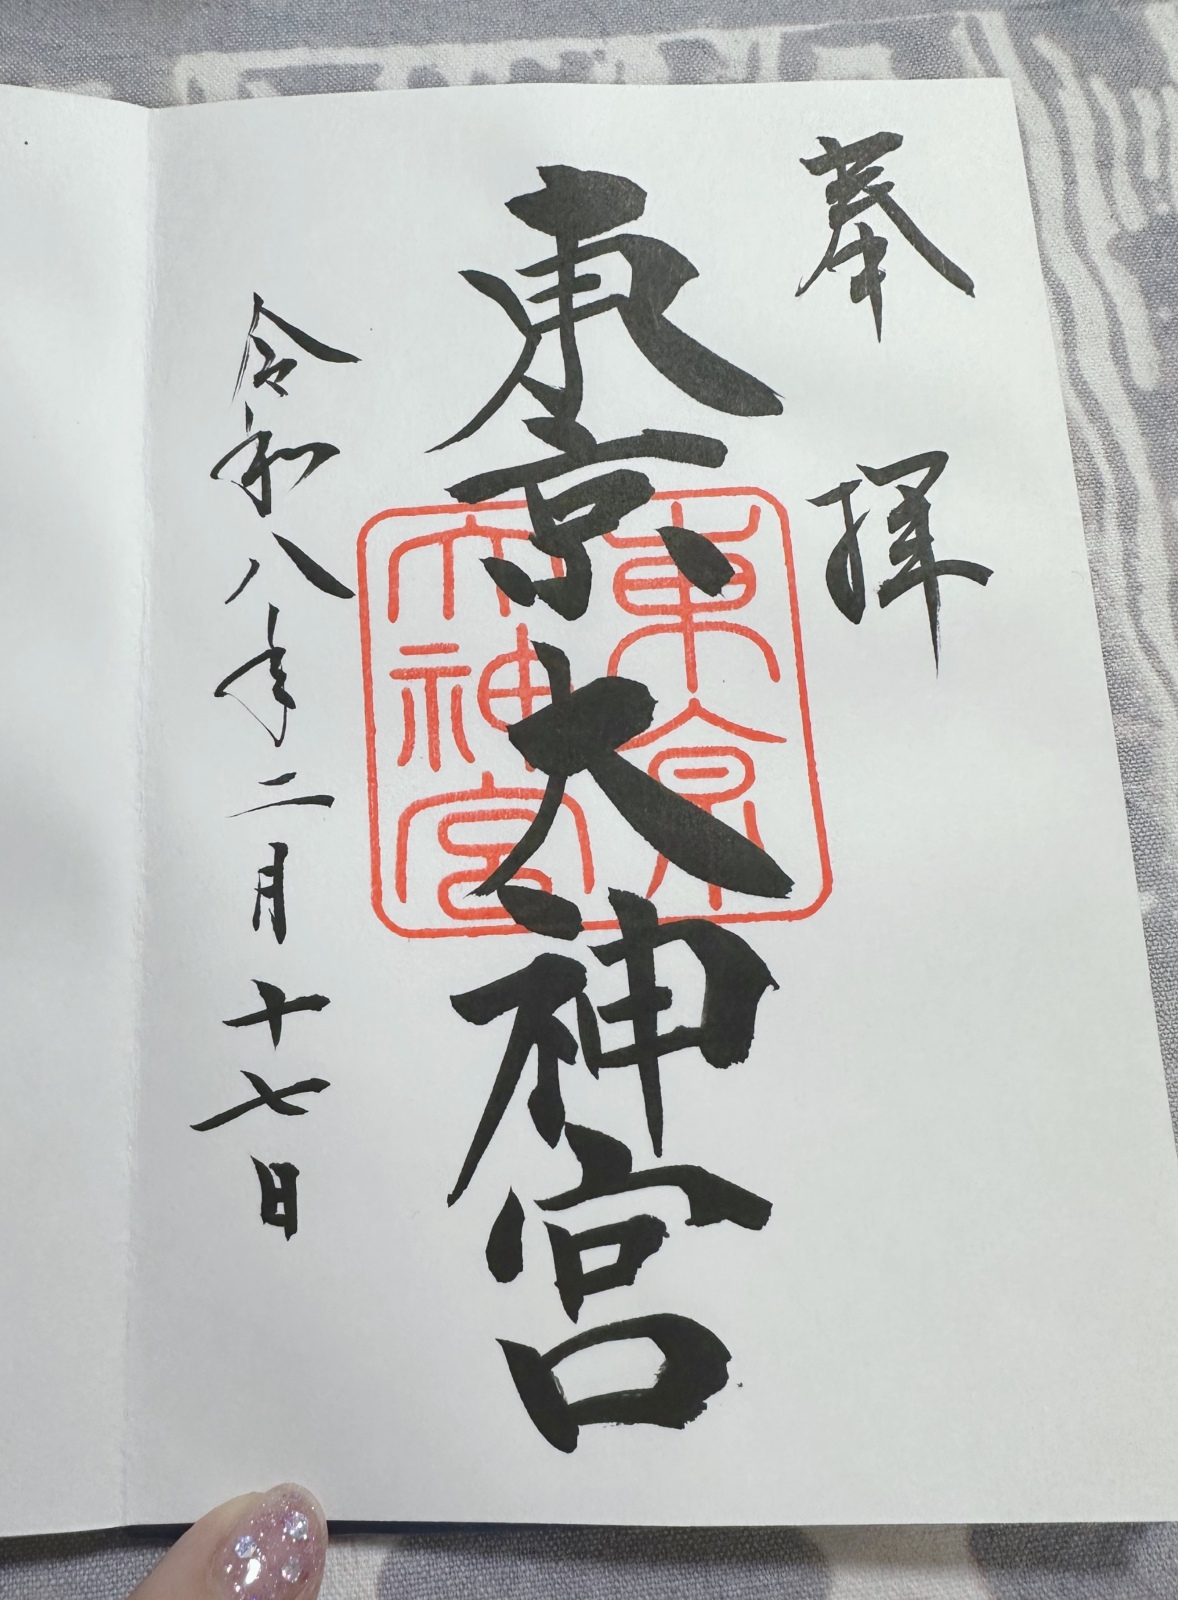 奉拝
東京大神宮
東京
大神宮
令和八年二月十七日